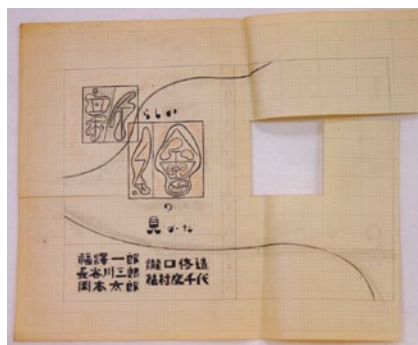 新らしい
繪
の
見かた
福澤一郎
長谷川三郎
岡本太郎
瀧口修造
植村鷹千代